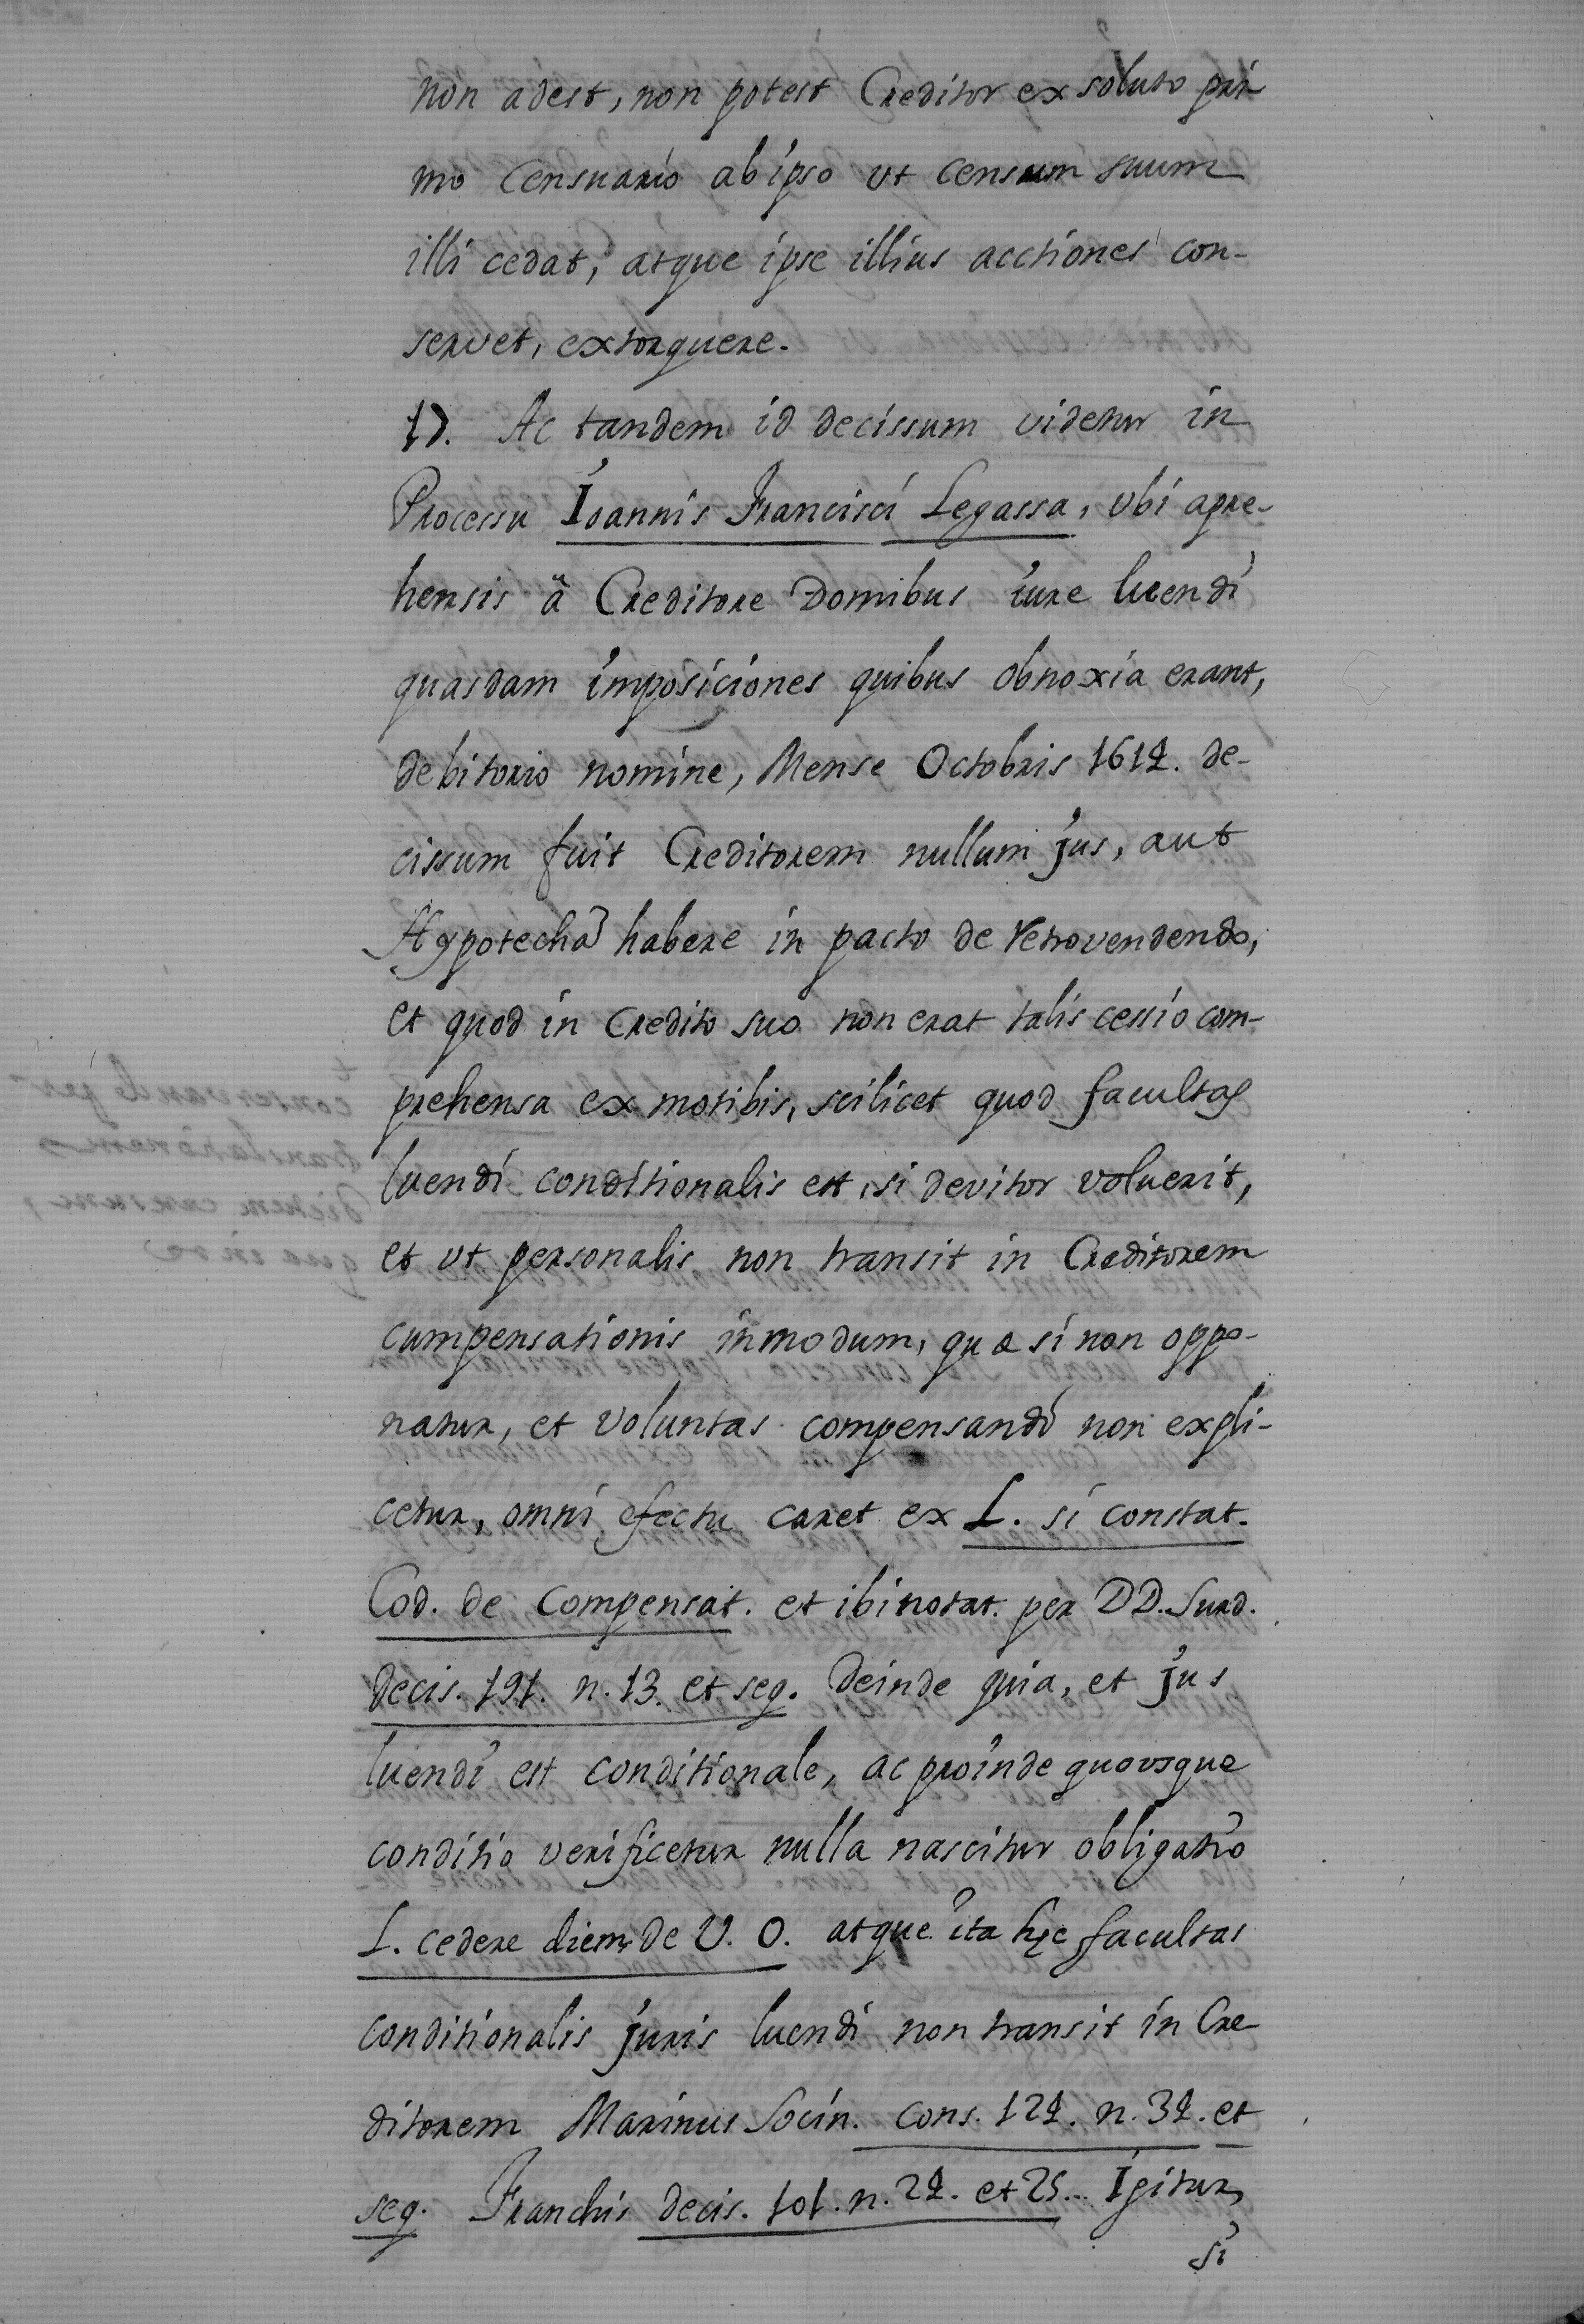 non adest, non potest Creditor ex soluto pri
mo Censuario ab ipso ut censum suum
illi cedat, atque ipse illius acctiones con-
servet, extorquere.
17. Ac tandem id decissum videtur in
Processu Ioannis Francisci Legassa, ubi apre-
hensis â Creditore Domibus iure luendi
quasdam imposiciones quibus obnoxia erant,
debitorio nomine, Mense Octobris 1612. de-
cissum fuit Creditorem nullum jus, aut
Hypotechã habere in pacto de retrovendendo,
et quod in Credito suo non erat talis cessio com-
prehensa ex motibis, scilicet quod facultas
luendi conditionalis est, si devitor voluerit,
et ut personalis non transit in Creditorem
cumpensationis inmodum, quæ si non oppo-
natur, et voluntas compensandi non expli-
cetur, omni efectu caret ex L. si constat.
Cod. de Compensat. et ibi notat. per DD. Surd.
decis. 191. n. 13. et seq. Deinde quia, et jus
luendi est conditionale, ac proinde quousque
conditio verificetur nulla nascitur obligatio
L. cedere diem de V. O. atque ita hęc facultas
conditionalis juris luendi non transit in Cre
ditorem Marinus Socin. cons. 122. n. 32. et
seq. Franchis decis. 101. n. 22. et 25. Igitur,
si